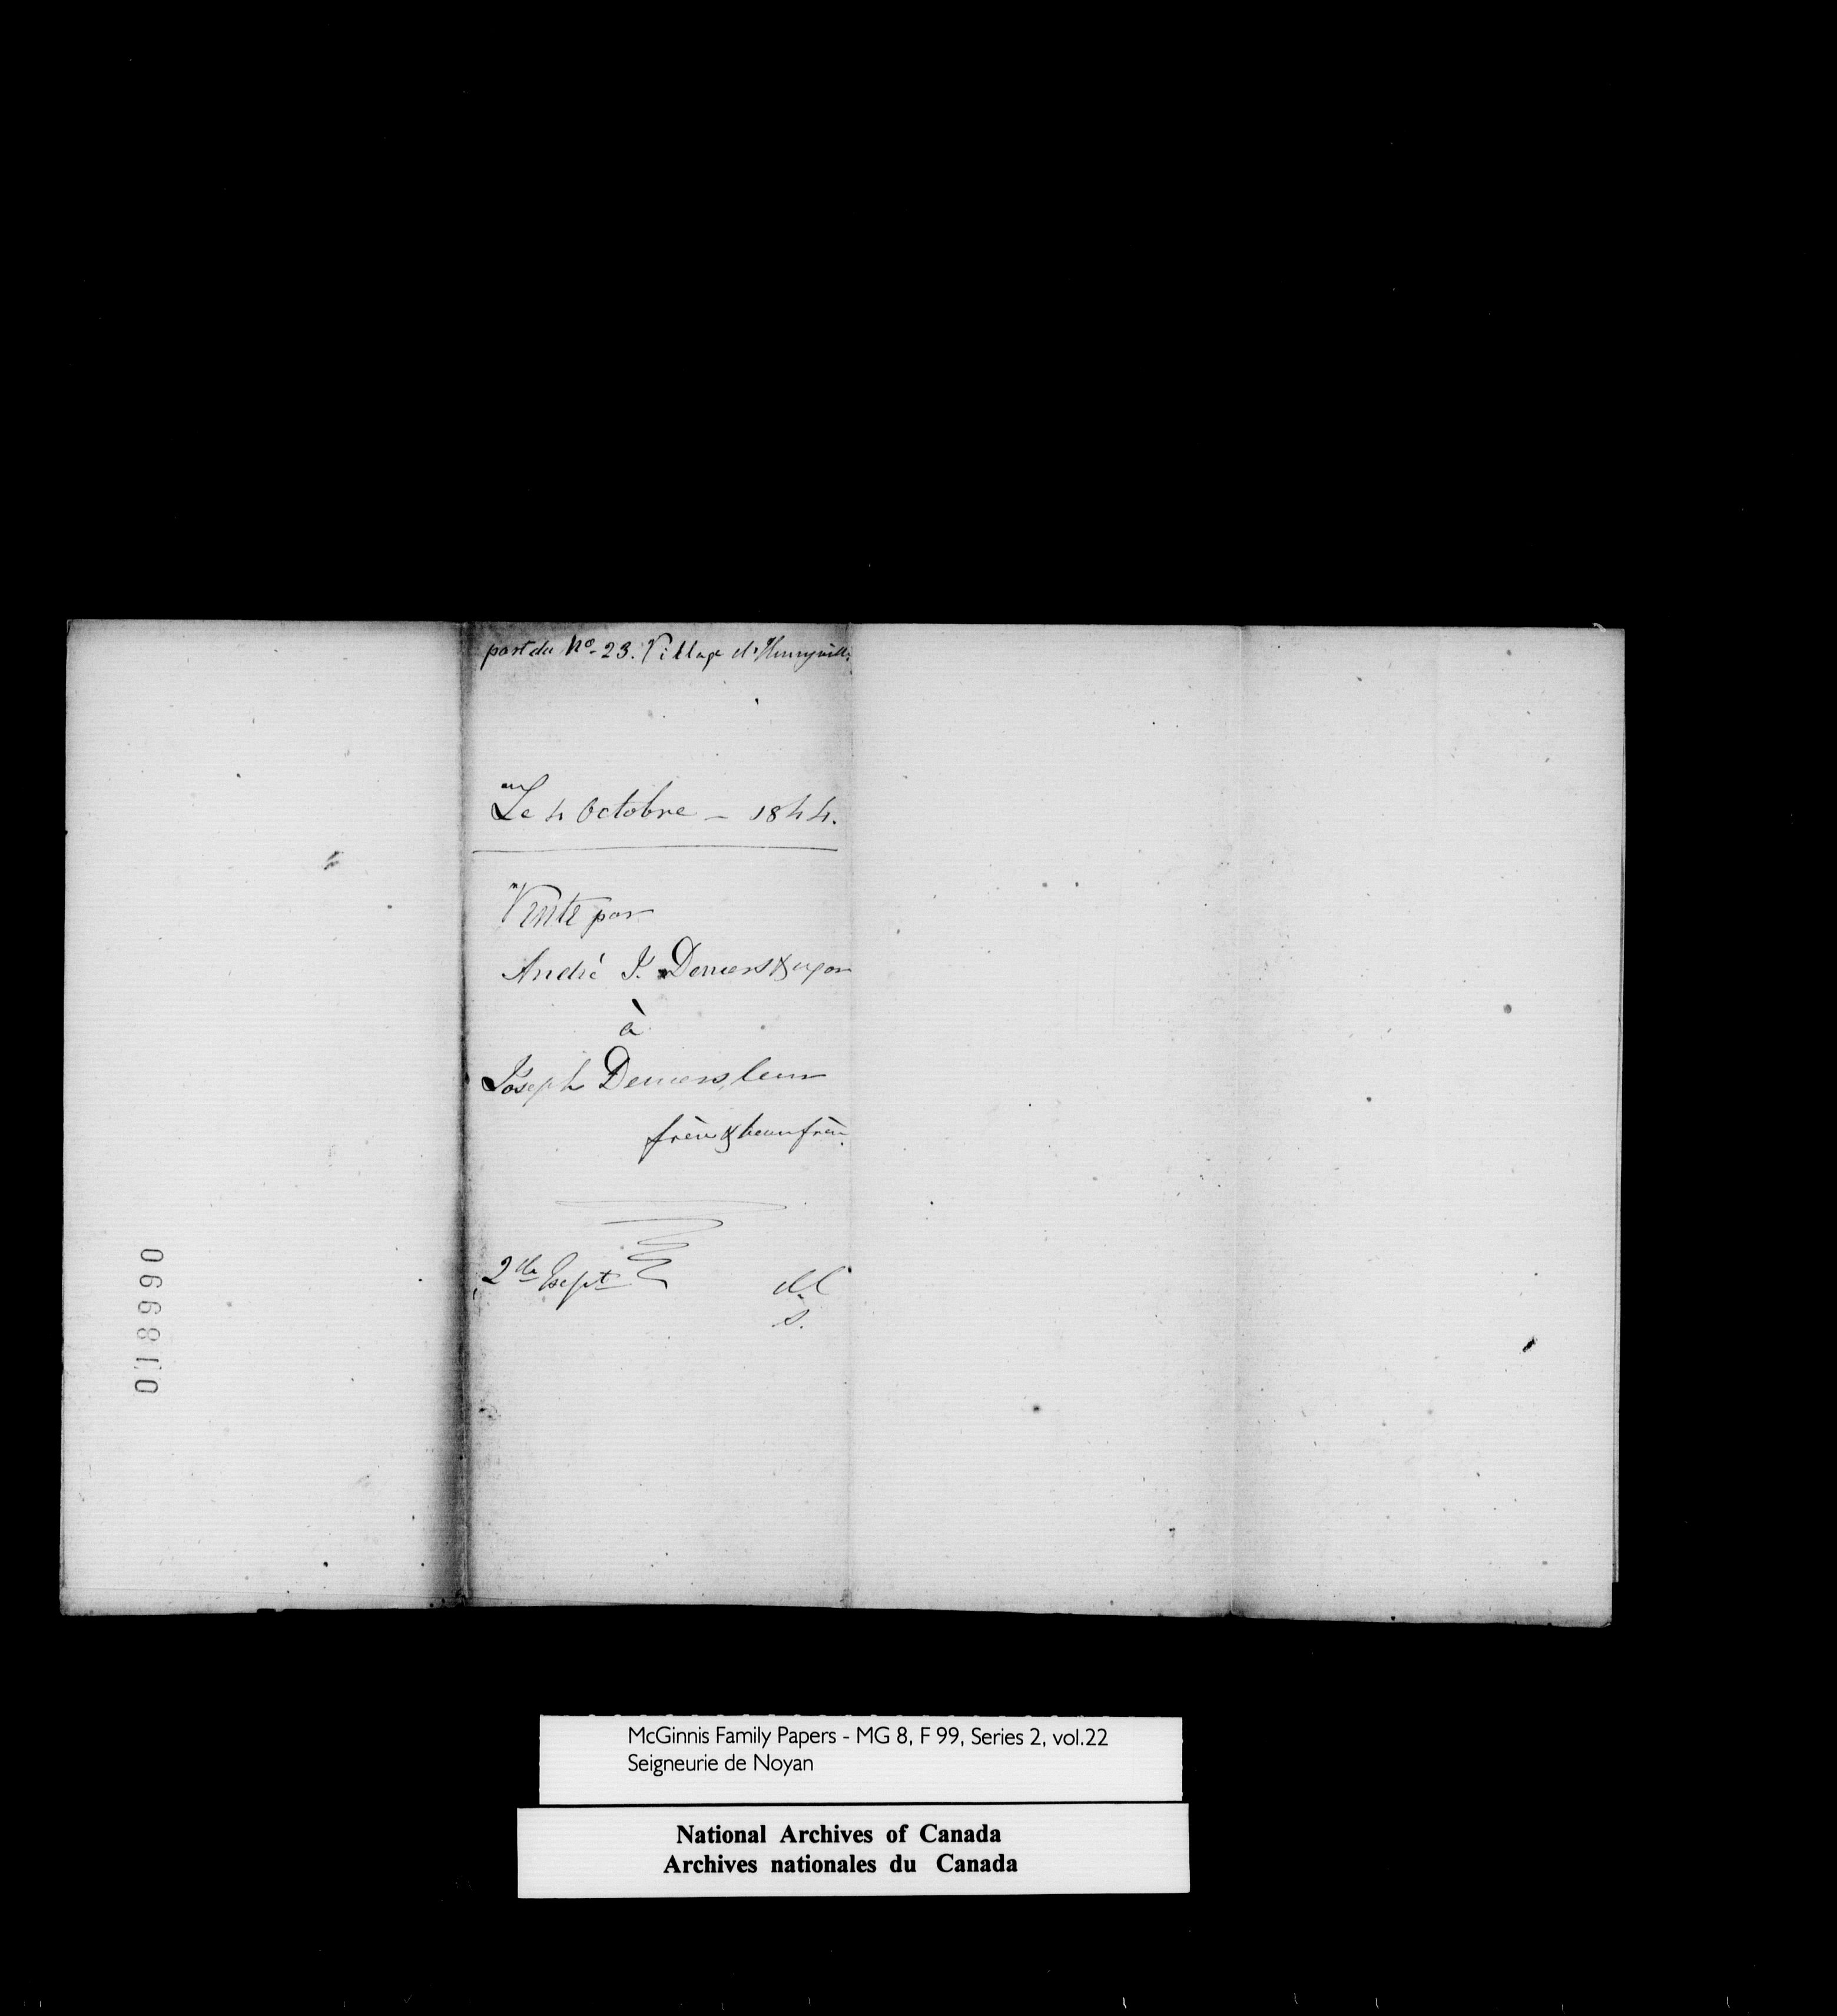 part du No- 23. Village d'Henryville
Le 4 Octobre - 1844.
Vente par
André J. Demers & upon
à
Joseph Demers, leur
frère & beaufrère.
2de Expt
018990
McGinnis Family Papers - MG 8, F 99, Series 2, vol.22
Seigneurie de Noyan
National Archives of Canada
Archives nationales du Canada